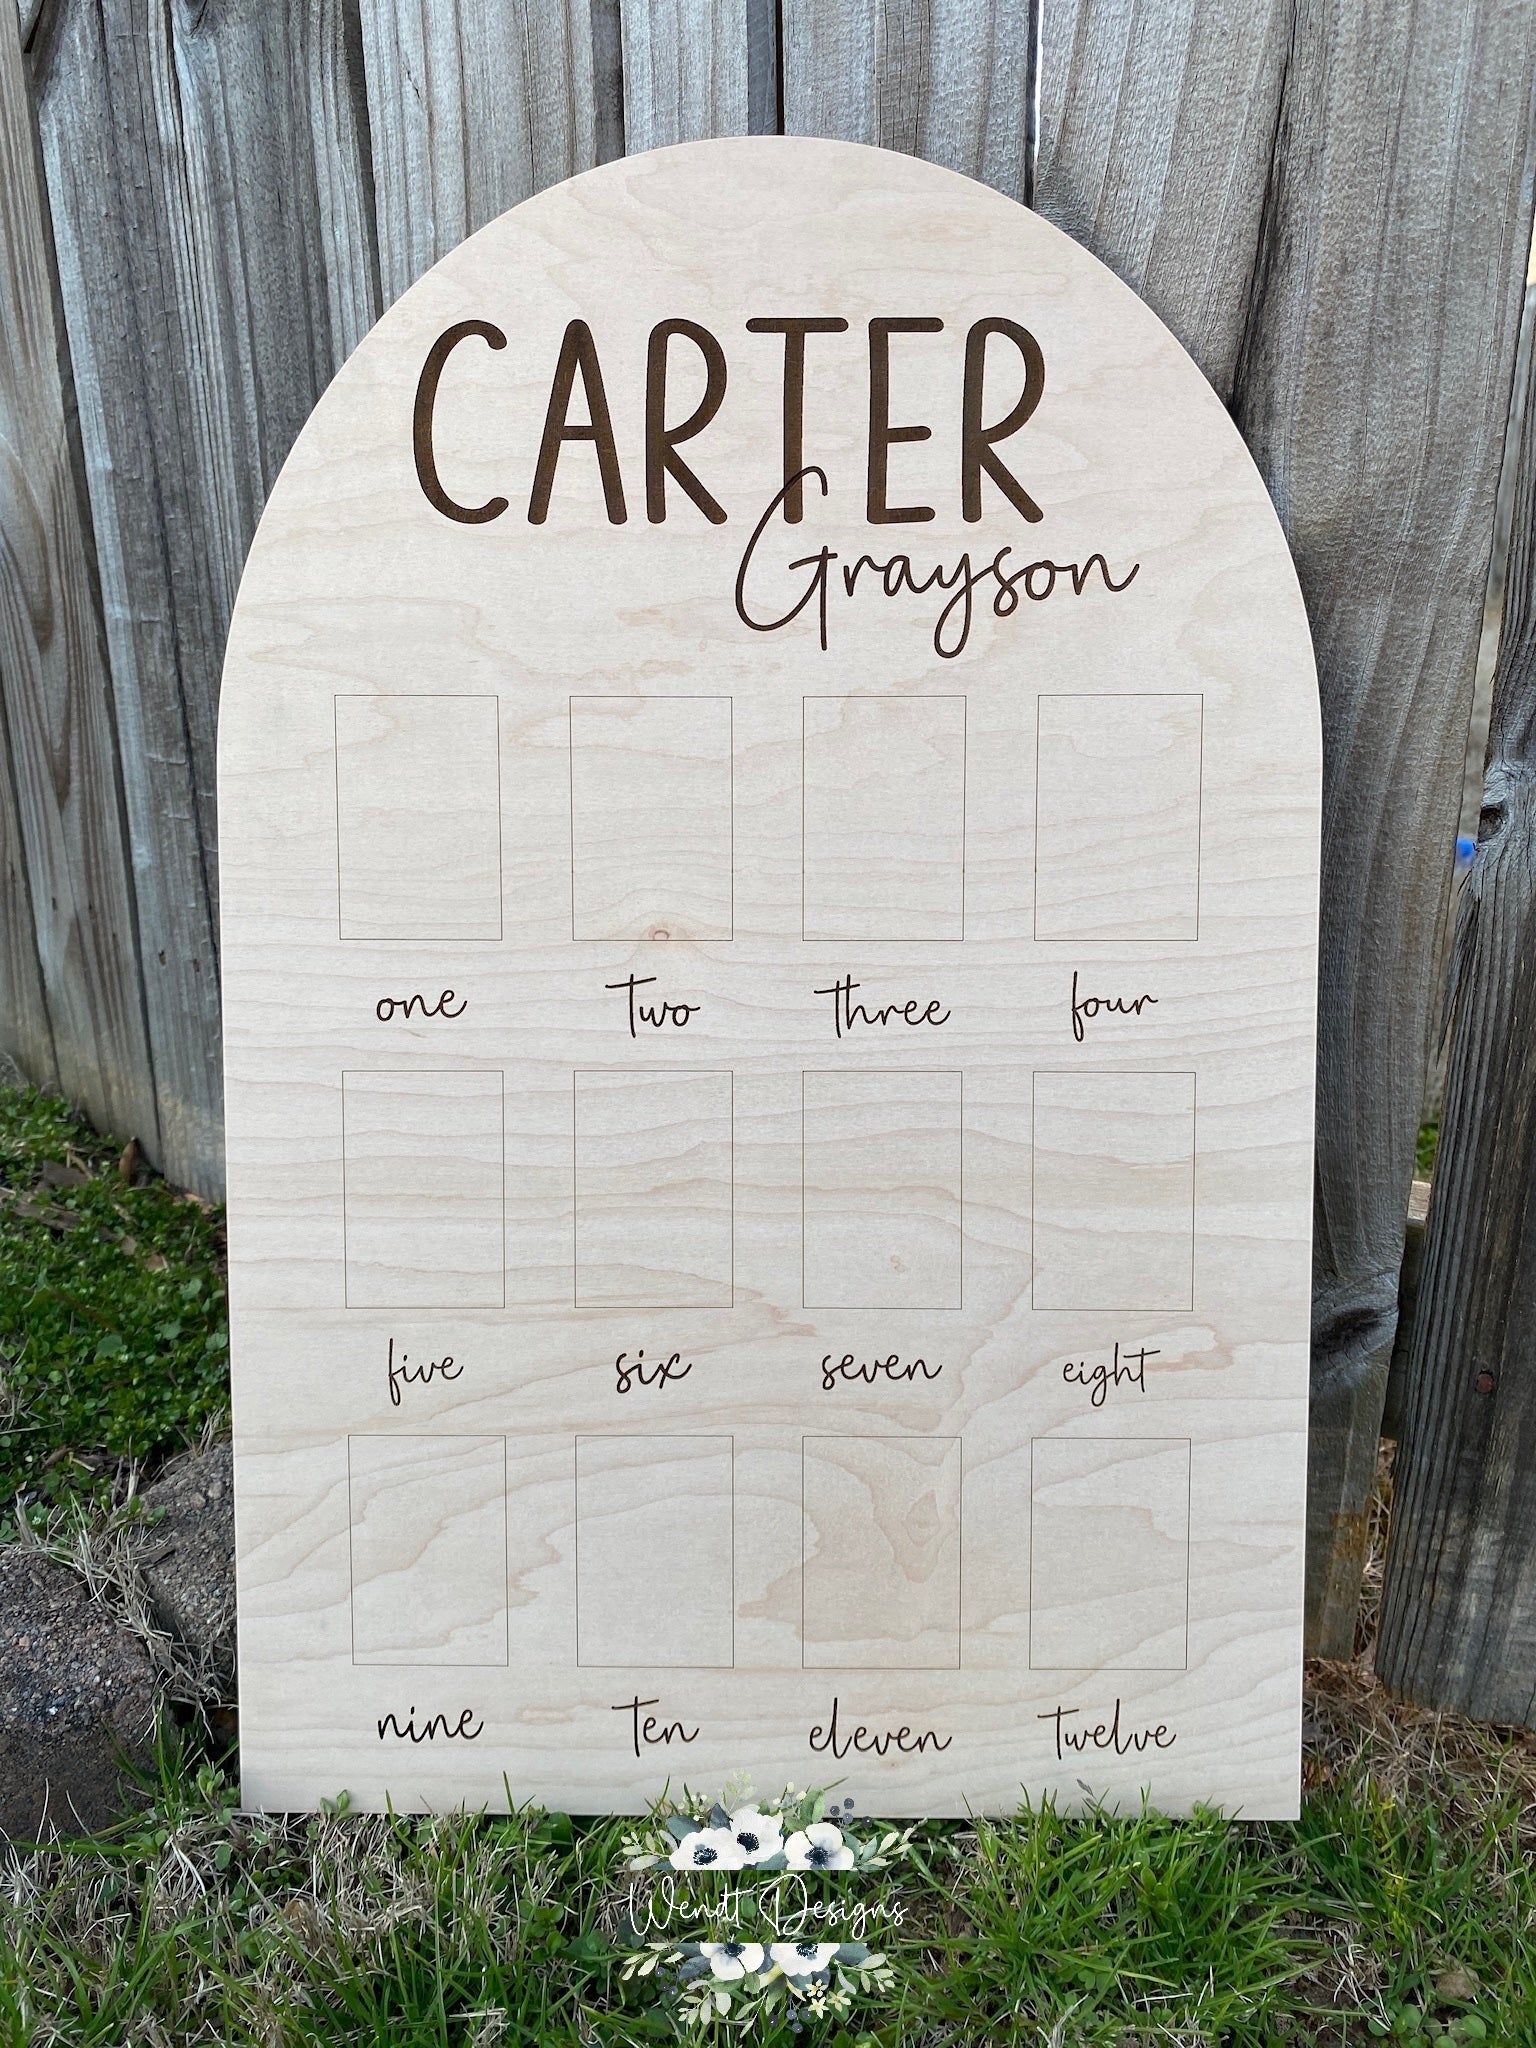 CARTER
Grayson
one two three four
five six seven eight
nine ten eleven twelve
Wendt Designs